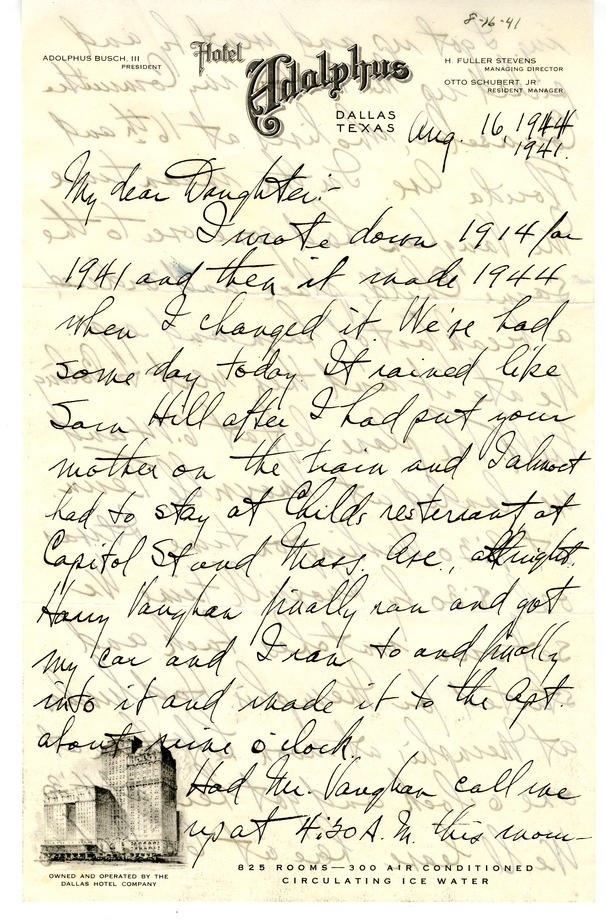 8-16-41
ADOLPHUS BUSCH, III
PRESIDENT
Hotel
Adolphus
H. FULLER STEVENS
MANAGING DIRECTOR
OTTO SCHUBERT, JR
RESIDENT MANAGER
DALLAS
TEXAS
Aug. 16, 1944
1941.
My dear Daughter:-
I wrote down 1914 for
1941 and then it made 1944
when I changed it. We've had
some day today. It rained like
Sam Hill after I had put your
mother on the train and I almost
had to stay at Childs resterant at
Capitol St and Mass. Ave., all night.
Harry Vaughan finally ran and got
my car and I ran to and finally
into it and made it to the apt.
about nine o'clock.
Had Mr. Vaughan call me
up at 4:30 A.M. this morn-
OWNED AND OPERATED BY THE
DALLAS HOTEL COMPANY
825 ROOMS—300 AIR CONDITIONED
CIRCULATING ICE WATER